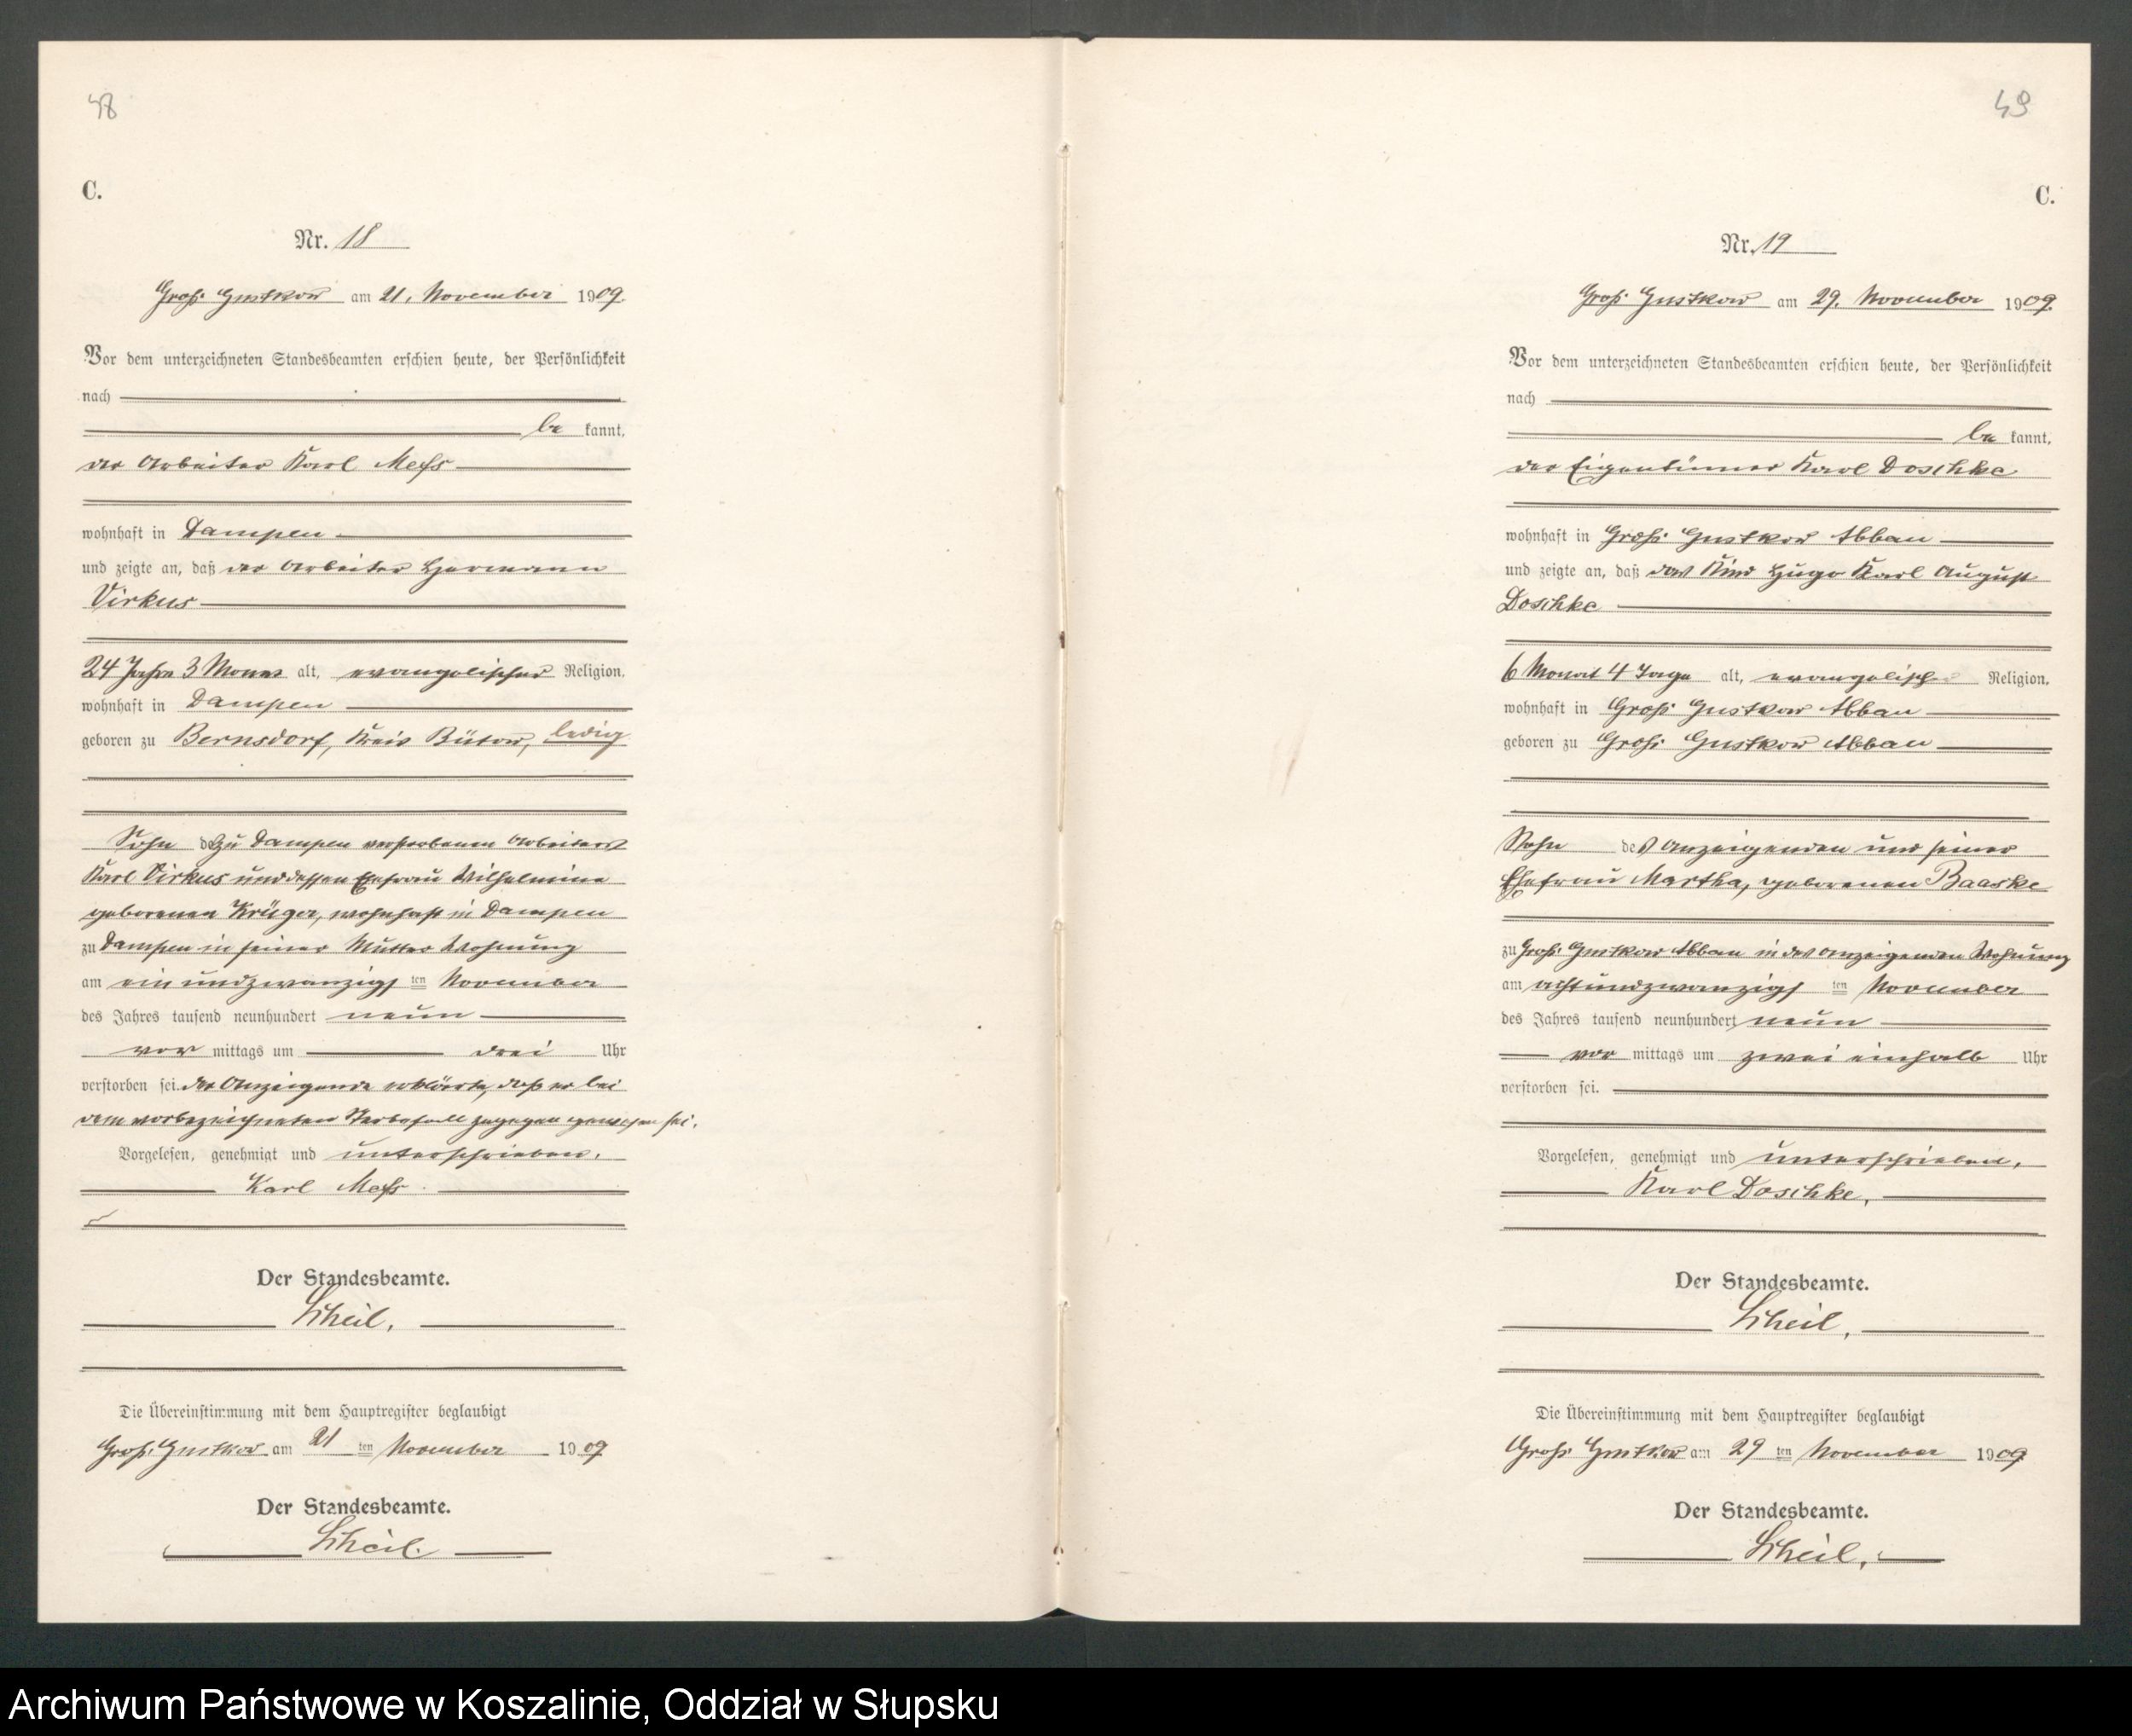 48
C.
Nr. 18
Groß Gustkow am 21. November 1909.
Vor dem unterzeichneten Standesbeamten erschien heute, der Persönlichkeit
nach
be kannt,
der Arbeiter Karl Mess
wohnhaft in Dampen
und zeigte an, daß der Arbeiter Hermann
Virkus
24 Jahre 3 Monat alt, evangelischer Religion,
wohnhaft in Dampen
geboren zu Bernsdorf, Kreis Bütow, ledig
Sohn des zu Dampen verstorbenen Arbeiters
Karl Virkus und dessen Ehefrau Wilhelmine
geborenen Krüger, wohnhaft in Dampen
zu Dampen in seiner Mutter Wohnung
am ein und zwanzigs ten November
des Jahres tausend neunhundert neun
vor mittags um drei Uhr
verstorben sei. Der Anzeigende erklärte, daß er bei
dem vorbezeichneten Sterbefall zugegen gewesen sei.
Vorgelesen, genehmigt und unterschrieben.
Karl Mess.
Der Standesbeamte.
Scheil.
Die Übereinstimmung mit dem Hauptregister beglaubigt
Groß Gustkow am 21 ten November 1909
Der Standesbeamte.
Scheil.
49
C.
Nr. 19
Groß Gustkow am 29. November 1909.
Vor dem unterzeichneten Standesbeamten erschien heute, der Persönlichkeit
nach
be kannt,
der Eigentümer Karl Doschke
wohnhaft in Groß Gustkow Abbau
und zeigte an, daß das Kind Hugo Karl August
Doschke
6 Monat 4 Tage alt, evangelischer Religion,
wohnhaft in Groß Gustkow Abbau
geboren zu Groß Gustkow Abbau
Sohn des Anzeigenden und seiner
Ehefrau Martha, geborenen Baaske
zu Groß Gustkow Abbau in des Anzeigenden Wohnung
am achtundzwanzigs ten November
des Jahres tausend neunhundert neun
vor mittags um zwei einhalb Uhr
verstorben sei.
Vorgelesen, genehmigt und unterschrieben.
Karl Doschke.
Der Standesbeamte.
Scheil.
Die Übereinstimmung mit dem Hauptregister beglaubigt
Groß Gustkow am 29 ten November 1909
Der Standesbeamte.
Scheil.
Archiwum Państwowe w Koszalinie, Oddział w Słupsku